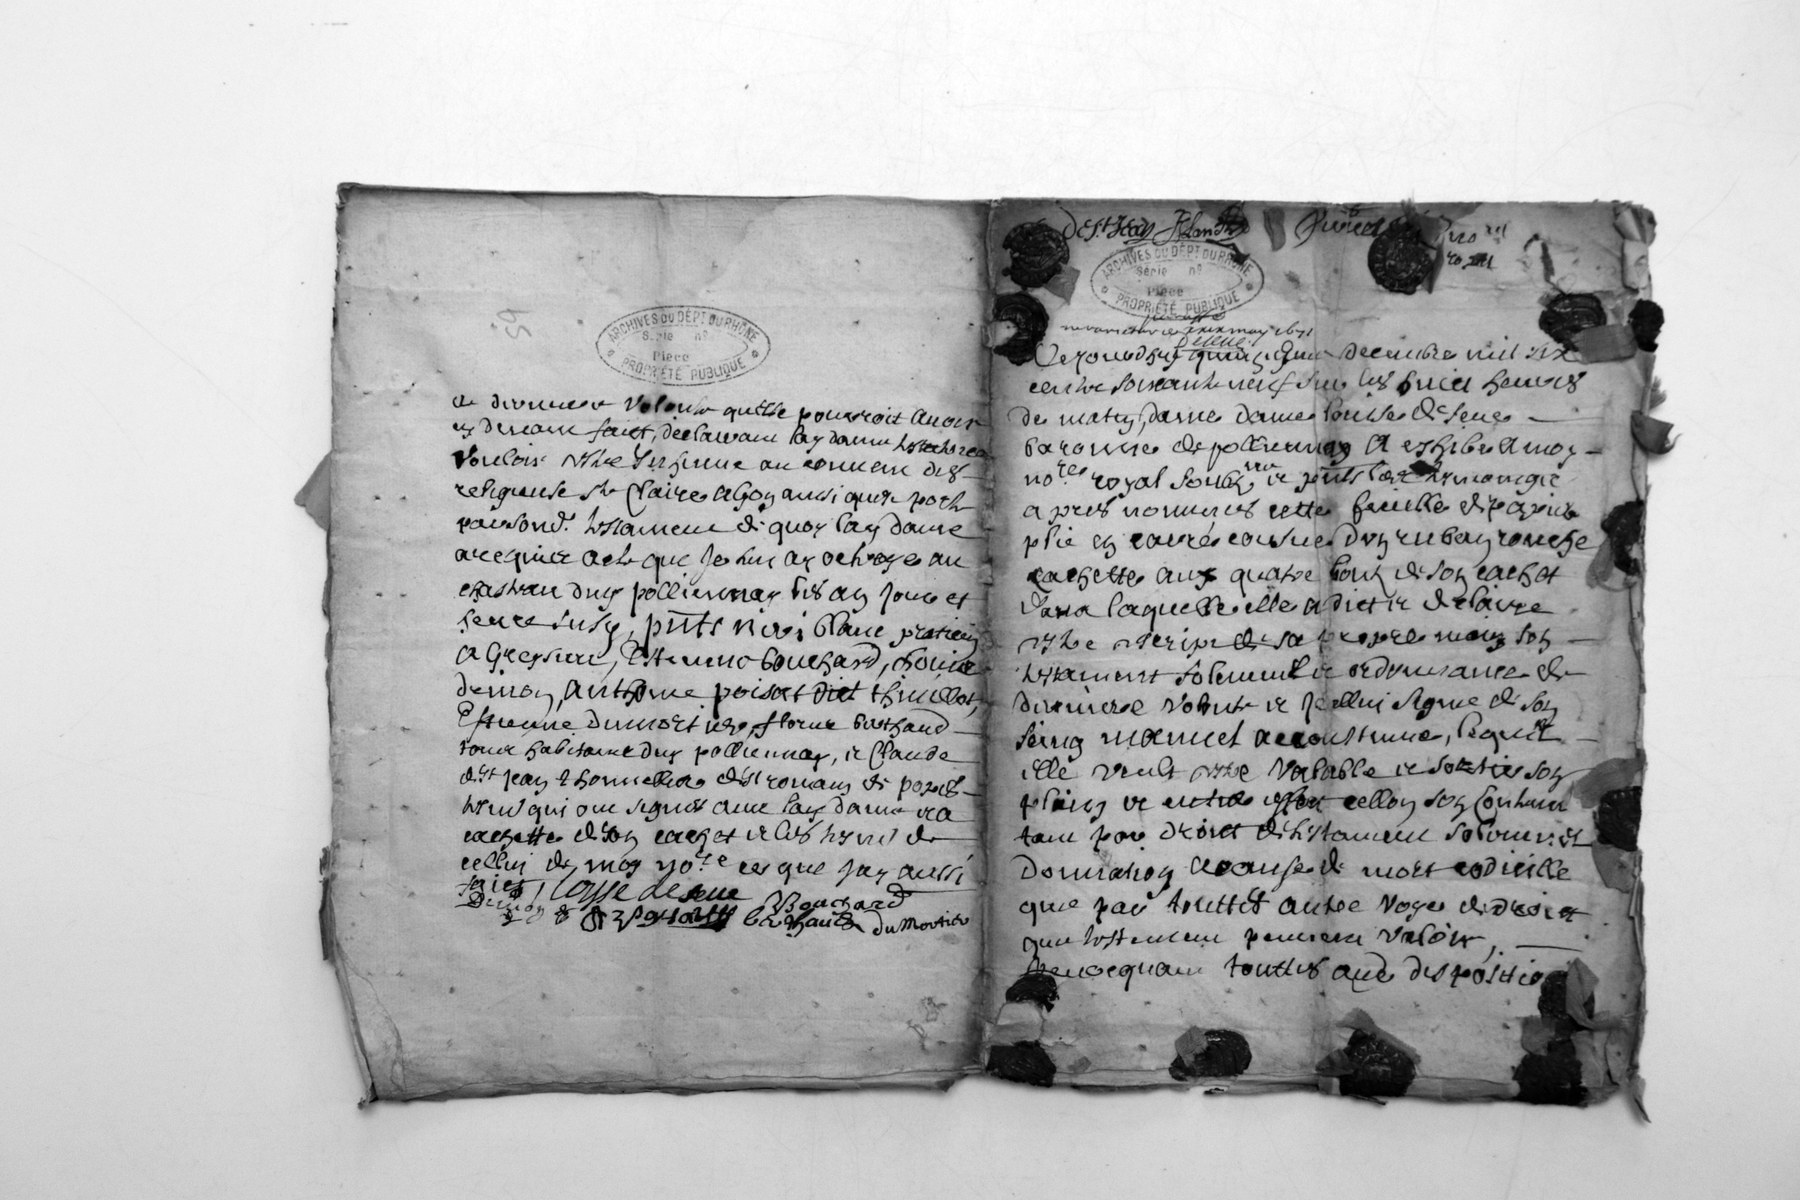 de derniere Volonte quelle pourroit avoir
cy devant faict, declarant lad dame testatrice
Vouloir estre Inhumee au couvent des
religieuses ste Claire a Lyon ainsi quelle porte
par sond. testament de quoy lad dame
a requis acte que Je luy ay octroye au
chasteau dud pollionnay les an jour et
heure susd, pnts
a Gresieu, Estienne bouchard,
demon, Anthoine poisat dict
Estienne dumortier, fleurie berthaud
tous habitants dud pollionnay, et Claude
de st romain de
temoins qui ont signes avec lad dame et a
cachette de son cachet et les tesmoins de
celluy de moy no.re ce que jay aussi
faict, Loyse de seve Bouchard
Demon berthaud du Mortier
ARCHIVES DU DÉPT DU RHÔNE
Série nº
Pièce
PROPRIÉTÉ PUBLIQUE
ARCHIVES DU DÉPT DU RHÔNE
Série nº
Pièce
PROPRIÉTÉ PUBLIQUE
may 1671
Deseve
Ce jourdhuy quinziesme decembre mil six
cents soixante neuf sur les huict heures
de matin, dame dame Louise de seve
baronne de pollionnay a exhibe a moy
no.re royal soubz.ne et pnts les tesmoings cy
apres nommes cette feuille de papier
plie en carré cousue dun ruban rouge
cachettee aux quatre bouts de son cachet
dans laquelle elle a dict et declare
estre escript de sa propre main son
testament solennel et ordonnance de
derniere volonte et Icelluy signe de son
seing manuel accoustume, lequel
elle veult estre Valable et sortir son
plain et entier effect cellon son contenu
tant par droict de testament solonnel
donnation a cause de mort codicille
que par touttes autre voye de droict
que testament pourra valoir,
Revocquant touttes aues dispositio